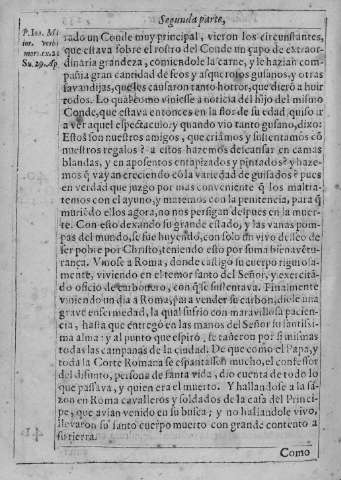 Segunda parte,
P. Ioã. Ma
ior. verb.
mors. ex. 21
Su. 29. Ap.
rado un Conde muy principal, vieron los circunstantes,
que estava sobre el rostro del Conde un çapo de extraor-
dinaria grandeza, comiendole la carne, y le hazian com-
pañia gran cantidad de feos y asquerosos gusanos, y otras
savandijas, que les causaron tanto horror, que dierõ a huir
todos. Lo qual como viniesse a noticia del hijo del mismo
Conde, que estava entonces en la flor de su edad, quiso ir
a ver aquel espectaculo: y quando vio tanto gusano, dixo:
Estos son nuestros amigos, que criamos y sustentamos cõ
nuestros regalos? a estos hazemos descansar en camas
blandas, y en aposentos entapizados y pintados? y haze-
mos q̃ vayan creciendo cõ la variedad de guisados? pues
en verdad que juzgo por mas conveniente q̃ los maltra-
temos con el ayuno, y matemos con la penitencia, para q̃
muriẽdo ellos agora, no nos persigan despues en la muer-
te. Con esto dexando su grande estado, y las vanas pom-
pas del mundo, se fue huyendo, con solo un vivo desseo de
ser pobre por Christo, teniendo esto por suma bienaven-
rança. Vinose a Roma, donde castigò su cuerpo riguros a-
mente, viviendo en el temor santo del Señor, y exercitã-
do oficio de carbonero, con que se sustentava. Finalmente
viniendo un dia a Roma, para vender su carbon, diole una
grave enfermedad, la qual sufrio con maravillosa pacien-
cia, hasta que entregò en las manos del Señor su santissi-
ma alma: y al punto que espirò, se tañeron por si mismas
todas las campanas de la ciudad. De que como el Papa, y
toda la Corte Romana se espantassen mucho, el confessor
del difunto, persona de santa vida, dio cuenta de todo lo
que passava, y quien era el muerto. Y hallandose a la sa-
zon en Roma cavalleros y soldados de la casa del Princi-
pe, que avian venido en su busca; y no hallandole vivo,
llevaron su santo cuerpo muerto con grande contento a
su tierra.
Como